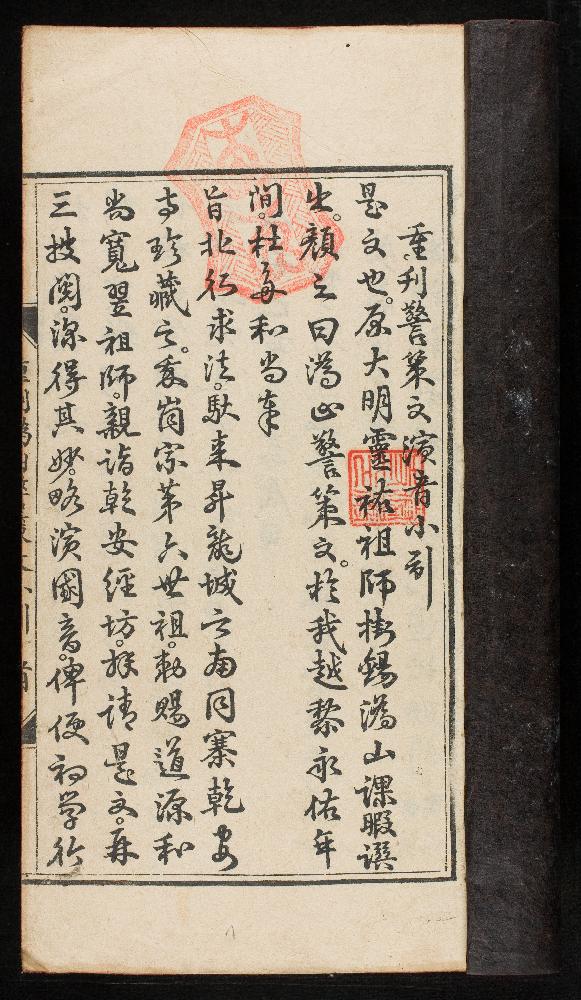 重刊警策文演音小引
是文也。原大明靈祐祖師掛錫溈山課暇譔
出。顏之曰溈山警策文。於我越黎永佑年
間。杜多和尚奉
旨北行求法。馱來昇龍城之南同寨乾安
寺珍藏之。爰崗宗第六世祖。勅賜道源和
尚寬翌祖師。親詣乾安經坊。採請是文。再
三披閱。深得其妙。略演國音。俾便初学行